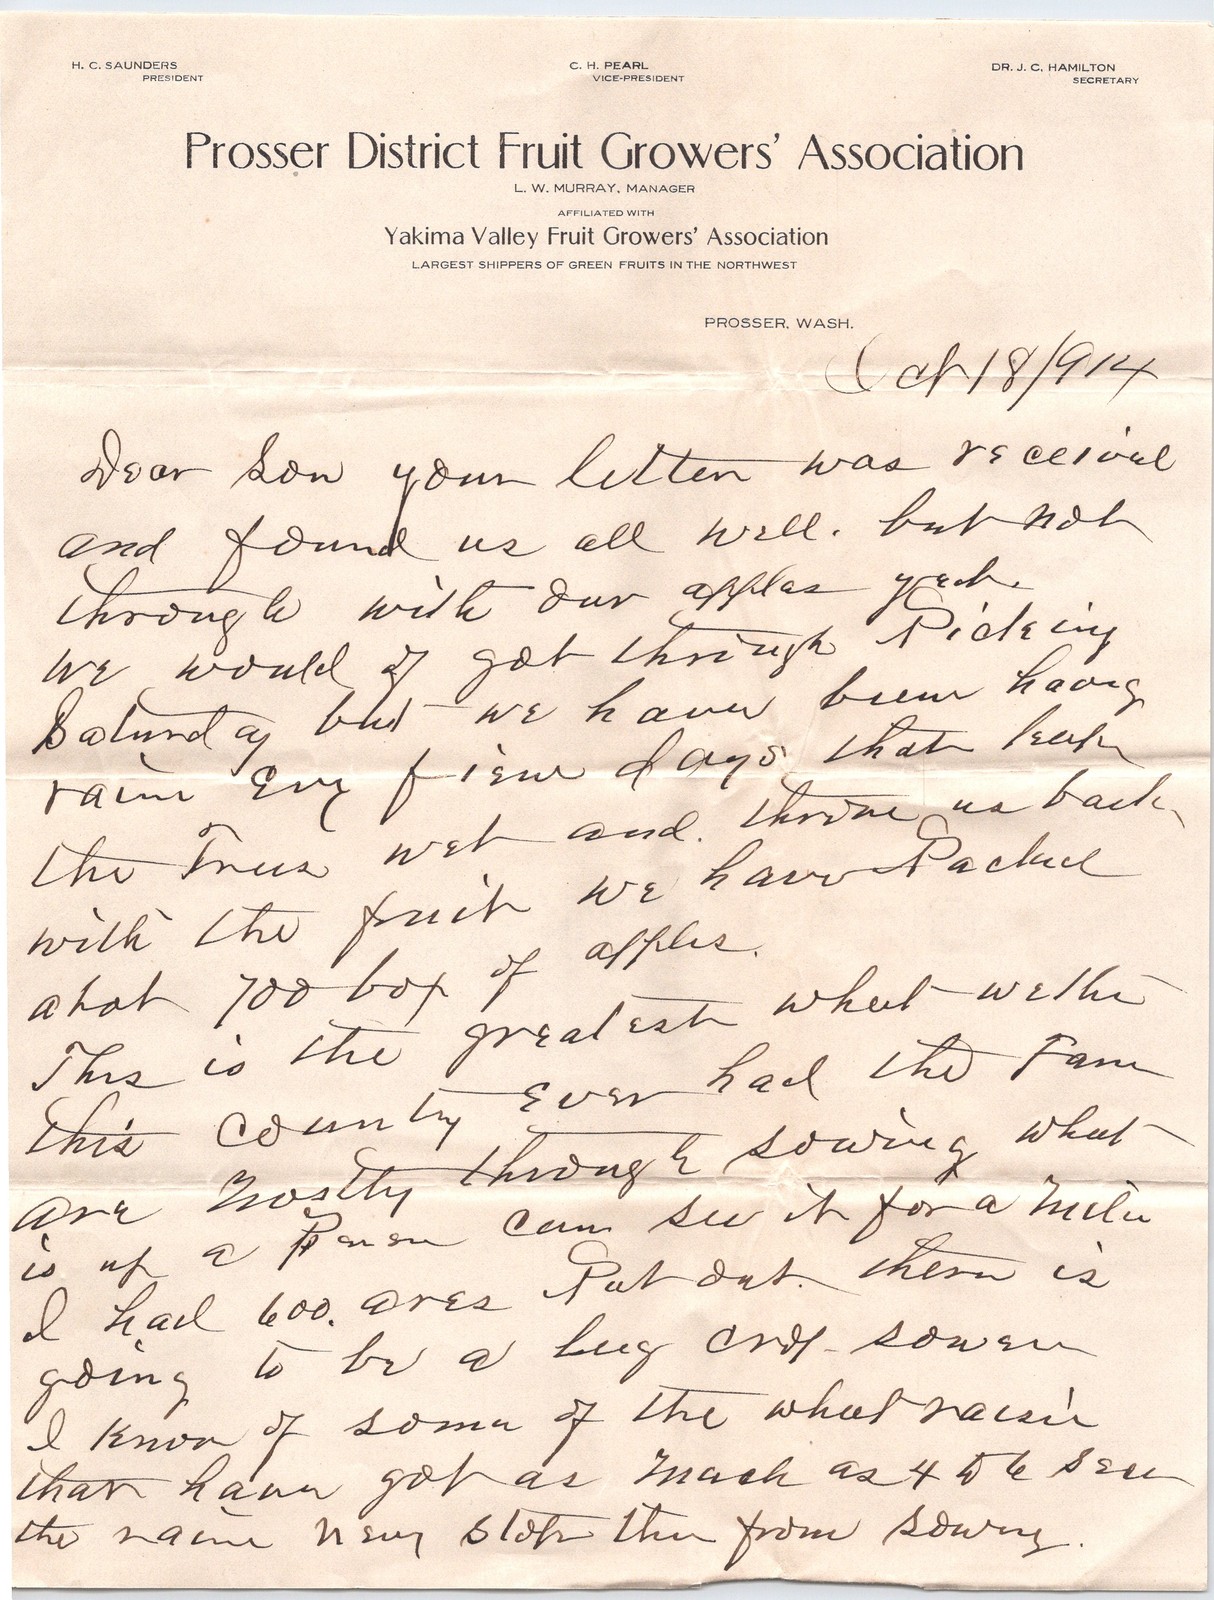 H. C. SAUNDERS
PRESIDENT
C. H. PEARL
VICE-PRESIDENT
DR. J. C. HAMILTON
SECRETARY
Prosser District Fruit Growers' Association
L. W. MURRAY, MANAGER
AFFILIATED WITH
Yakima Valley Fruit Growers' Association
LARGEST SHIPPERS OF GREEN FRUITS IN THE NORTHWEST
PROSSER, WASH.
Oct 18/914
Dear Son your letter was received
and found us all well. but not
through with our apples yet.
we would of got through Picking
Saturday but we have been having
rain Evry few days that keep
the Trees wet and. throne us back
with the fruit we have Packed
abot 700 box of apples.
This is the greatest wheat wether
this country Ever had the Farm
are Mostly through sowing wheat
is up a Person can see it for a Mile
I had 600. ares Put out. there is
going to be a big crop sowen
I know of some of the wheat raisir
that have got as Much as 4 to 6 Sec
the rain Nevr stops them from sowing.